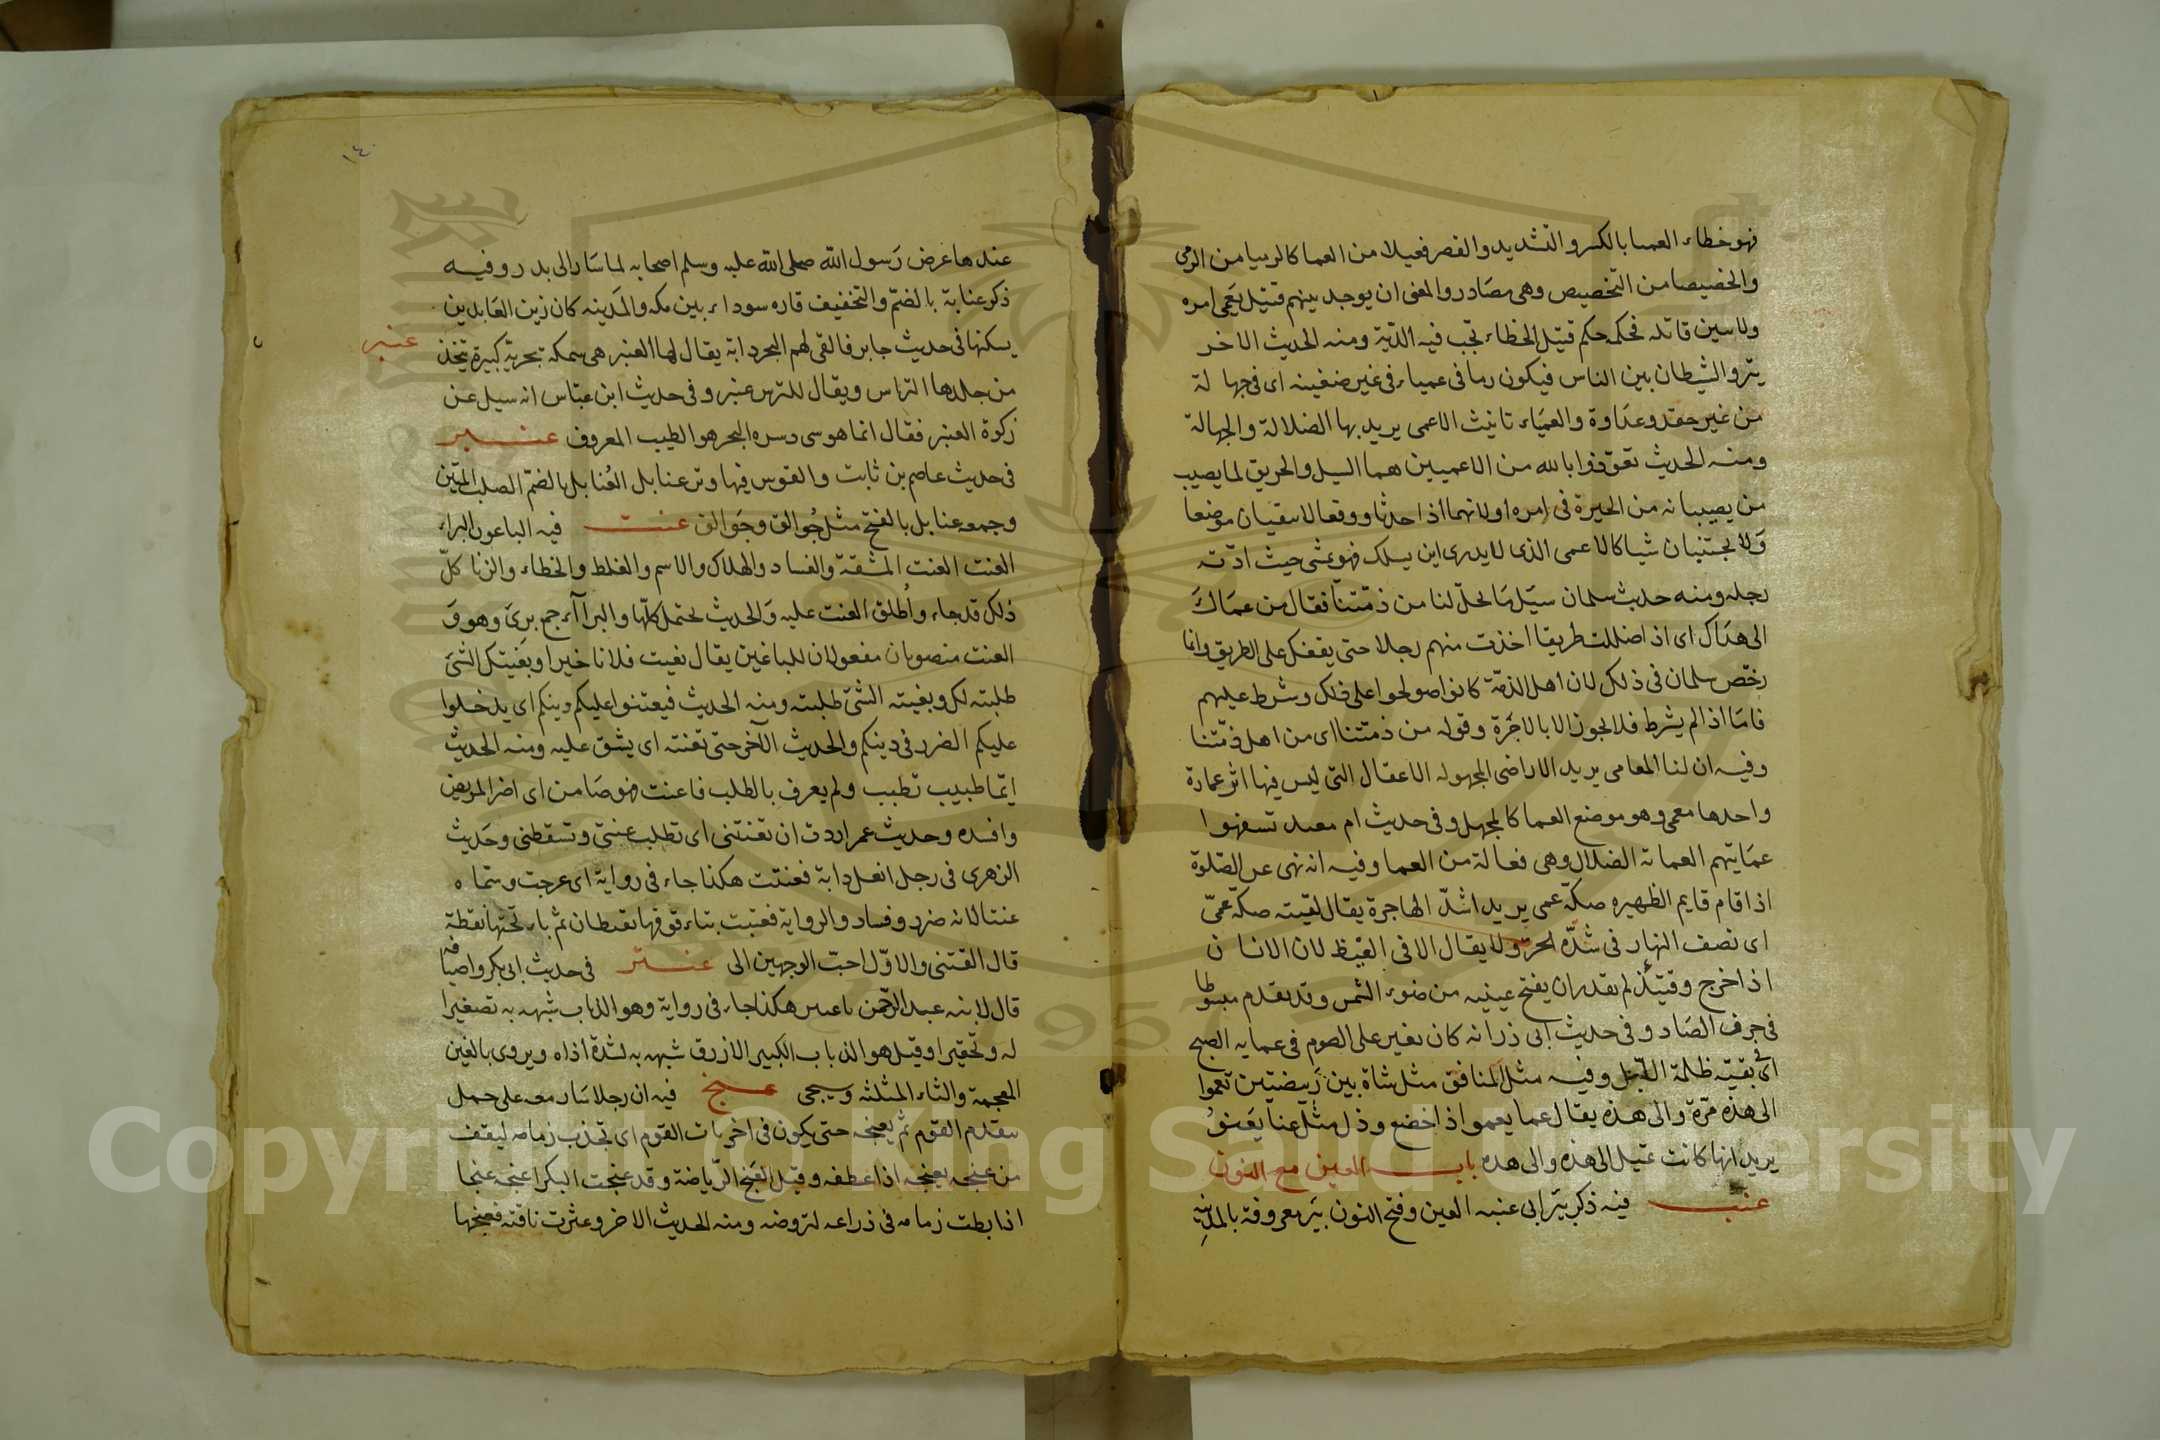 فهو خطاء العميا بالكسر والتشديد والقصر فعيلا من العما كالرميا من الرمى
والخصيصا من التخصيص وهى مصادر والمعنى ان يوجد بينهم قتيل يعمى امره
ولا يبين قاتله فحكمه حكم قتيل الخطاء تجب فيه الدّية ومنه الحديث الاخر
ينزو الشيطان بين الناس فيكون رما فى عمياء فى غير ضغينه اى فى جهالة
من غير حقد وعداوة والعمياء تانيث الاعمى يريد بها الضلالة والجهالة
ومنه الحديث تعوّذوا بالله من الاعميين هما السيل والحريق لما يصيب
من يصيبانه من الحيرة فى امره او لانهما اذا حدثا ووقعا لا يبقيان موضعا
ولا يجتنبان شيا كالاعمى الذى لا يدرى اين يسلك فهو يمشى حيث ادّته
رجله ومنه حديث سلمان سيل ما يحلّ لنا من ذمّتنا فقال من عماك
الى هداك اى اذا ضللت طريقا اخذت منهم رجلا حتى يقفك على الطريق وانما
رخّص سلمان فى ذلك لان اهل الذمّة كانوا صولحوا على ذلك وشرط عليهم
فامّا اذا لم يشرط فلا يجوز الا بالاجرة وقوله من ذمّتنا اى من اهل ذمّتنا
وفيه ان لنا المعامى يريد الاراضى المجهوله الاعقال التى ليس فيها اثر عمارة
واحدها معمى وهو موضع العما كالمجهل وفى حديث ام معبد تسفهوا
عمايتهم العماية الضلال وهى فعالة من العما وفيه انه نهى عن الصّلوة
اذا قام قايم الظهيره صكّة عمى يريد اشدّ الهاجرة يقال لقيته صكّة عمىّ
اى نصف النهار فى شدّه الحرّ ولا يقال الا فى القيظ لان الانسان
اذا خرج وقتيّذ لم يقدر ان يفتح عينيه من ضوء الشمس وقد تقدم مبسوطا
فى حرف الصاد وفى حديث ابى ذر انه كان يغير على الصرم فى عمايه الصبح
اى فى بقيّه ظلمة الليل وفيه مثل المنافق مثل شاة بين ربيضتين تعموا
الى هذه مرّة والى هذه يقال عما يعموا اذا خضع وذل مثل عنا يعنوُ
يريد انها كانت تميل الى هذه والى هذه باب العين مع النون
عنب فيه ذكر بئر ابى عنبه العين وفتح النون بئر معروفة بالمدينه
١٤٠
عندها عرض رَسول الله صلى الله عليه وسلم اصحابه لما سَار الى بدر وفيه
ذكر عنابة بالضمّ والتخفيف قاره سوداء بين مكه والمدينه كان زين العَابدين
يسكنها فى حديث جابر فالقى لهم البحر دابة يقال لها العنبر هى سمكه بحريّة كبيرة يتخذ عنبر
من جلدها التراس ويقال للترس عنبر وفى حديث ابن عبّاس انه سيل عن
زكوة العنبر فقال انما هو شى دسره البحر هو الطيب المعروف عنبر
فى حديث عاصم بن ثابت والقوس فيها وتر عنابل العُنابل بالضمّ الصلب المتين
وجمعه عنابل بالفتح مثل جُوالق وجَوالق عنت فيه الباغون البراء
العنت العنت المشقّة والفساد والهلاك والاسم والغلط والخطاء والزنا كلّ
ذلك قد جاء واُطلق العنت عليه وَالحديث يحتمل كلّها والبرآء جمع برى وهو وَ
العنت منصوبان مفعولان للباغين يقال بغيت فلانا خيرا وبغيتك الشى
طلبته لك وبغيته الشى طلبته ومنه الحديث فيعنتوا عليكم دينكم اى يدخلوا
عليكم الضرر فى دينكم والحديث الآخر حتى تعنته اى يشق عليه ومنه الحديث
ايّما طبيب تطبب ولم يعرف بالطلب فاعنت فهو ضامن اى اضر المريض
وافسده وحديث عمر اردت ان تعنتنى اى تطلب عنتى وتسقطنى وحَديث
الزهرى فى رجل انعل دابة فعنتت هكذا جاء فى رواية اى عرجت وسماه
عنتا لانه ضرر وفساد والرواية فعتبت بتاء فوقها نقطتان ثم باء تحتها نقطة
قال القتنى والاوّل احبّ الوجهين الى عنتر فى حديث ابى بكر واضيافه
قال لابنه عبد الرّحمن ياعنتر هكذا جاء فى رواية وهو الذباب شبهه به تصغيرا
له وتحقيرا وقيل هو الذباب الكبير الازرق شبهه به لشدة اذاه ويروى بالغين
المعجمة والثاء المثلثه وسيجى عنج فيه ان رجلا سَار معه على جمل
يتقدم القوم ثم يعنجه حتى يكون فى اخريات القوم اى يجذب زمامه ليقف
من عنجه يعنجه اذا عطفه وقيل العَنج الرّياضة وقد عنجت البكر اعنجه عنجا
اذا ربطت زمامه فى ذراعه لتروضه ومنه الحديث الاخر وعثرت ناقته فعنجها
Copyright © King Saud University
1957